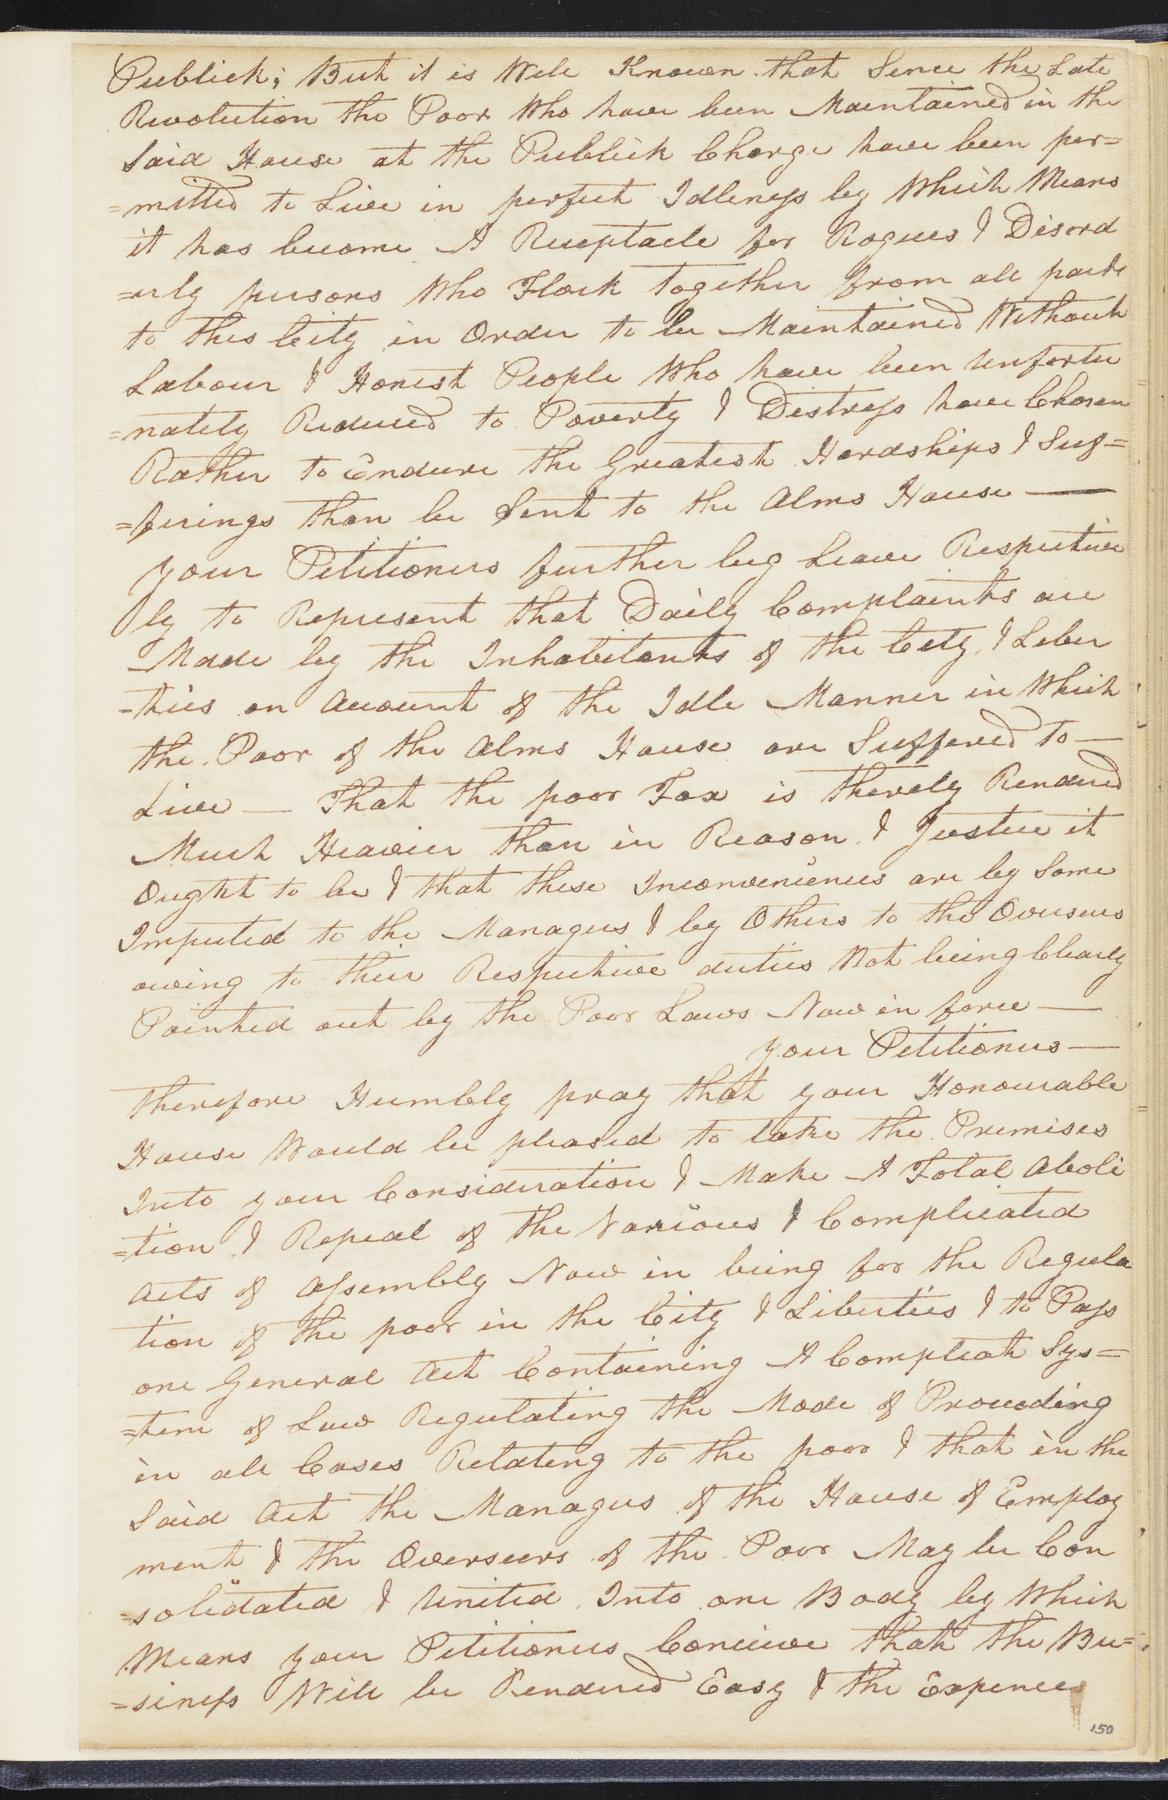 Publick; But it is Well Known that Since the Late
Revolution the Poor Who have been Maintained in the
Said House at the Publick Charge have been per=
=mitted to Live in perfect Idleness by Which Means
it has become A Receptacle for Rogues & Disord
=erly persons Who Flock together from all parts
to this City in Order to be Maintained Without
Labour & Honest People Who have been unfortu
=nately Reduced to Poverty & Distress have Chosen
Rather to Endure the Greatest Hardships & Suf=
=ferings than be Sent to the Alms House —
your Petitioners further beg Leave Respective
ly to Represent that Daily Complaints are
Made by the Inhabitants of the City & Liber
=ties on Account of the Idle Manner in Which
the Poor of the Alms House are Suffered to —
Live — That the poor Tax is thereby Rendered
Much Heavier than in Reason & Justice it
Ought to be & that these Inconveniences are by Some
Imputed to the Managers & by Others to the Overseers
owing to their Respective duties Not being Clearly
Pointed out by the Poor Laws Now in force —
your Petitioners —
therefore Humbly pray that your Honourable
House Would be pleased to take the Premises
Into your Consideration & Make A Total Aboli
=tion & Repeal of the Various & Complicated
Acts of Assembly Now in being for the Regula
tion of the poor in the City & Liberties & to Pass
one General Act Containing A Compleat Sys=
=tem of Law Regulating the Mode of Proceeding
in all Cases Relating to the poor & that in the
Said Act the Managers of the House of Employ
ment & the Overseers of the Poor May be Con
=solidated & United Into one Body by Which
Means your Petitioners Conceive that the Bu=
=siness Will be Rendered Easy & the Expences
150